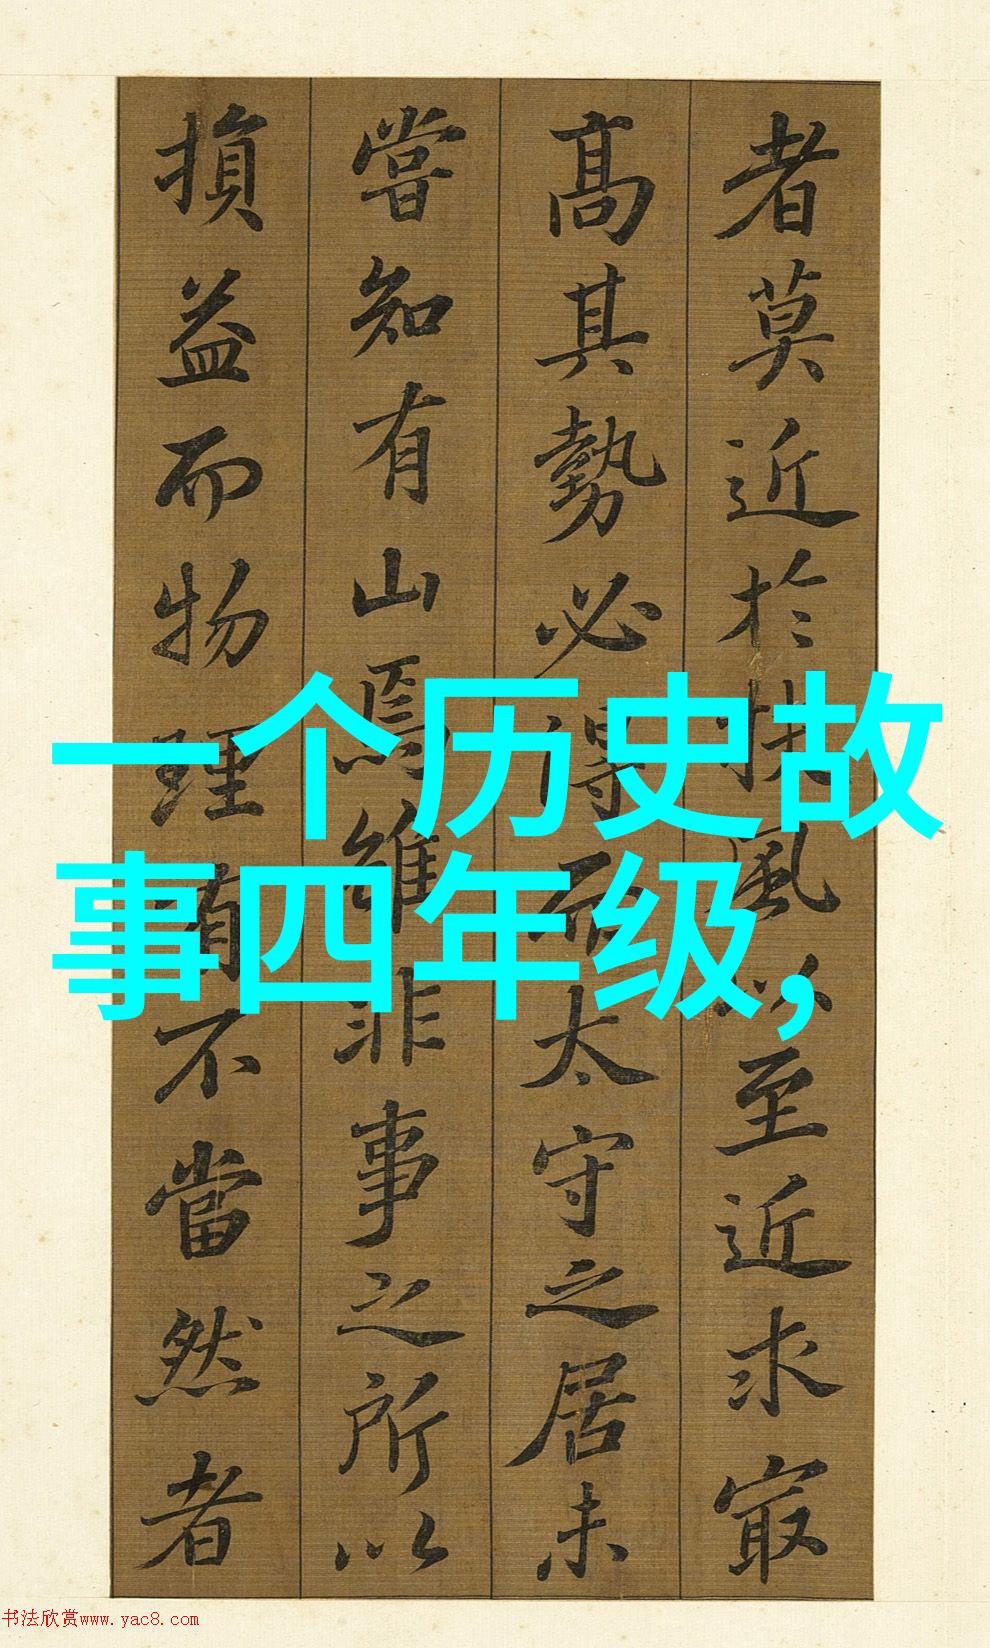 者莫近於扶風以至近求㝡
高其勢必得而太守之居未
嘗知有山焉雖非事之所以
損益而物理有不當然者
一个历史故
事四年级,
书法欣赏www.yac8.com